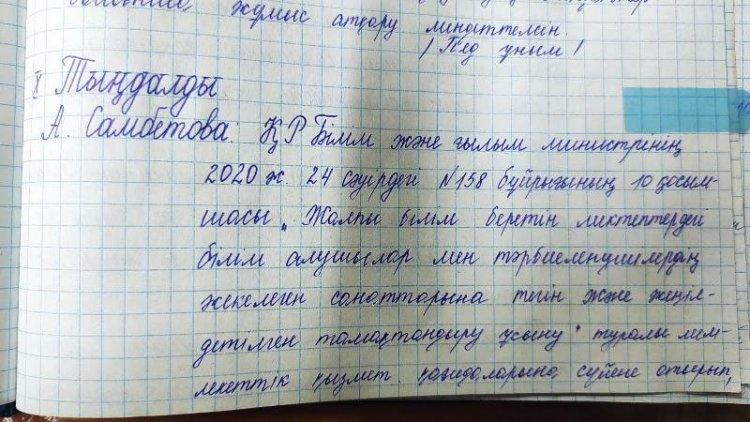 жұмыс атқару міндеттелсін.
/ Пед ұжым /
X Тыңдалды.
А. Самбетова: ҚР Білім және ғылым министрінің
2020 ж. 24 сәуірдегі №158 бұйрығының 10 қосым-
шасы „Жалпы білім беретін мектептердегі
білім алушылар мен тәрбиеленушілердің
жекелеген санаттарына тегін және жеңіл-
детілген тамақтандыру ұсыну" туралы мем-
лекеттік қызмет қағидаларына сүйене отырып,